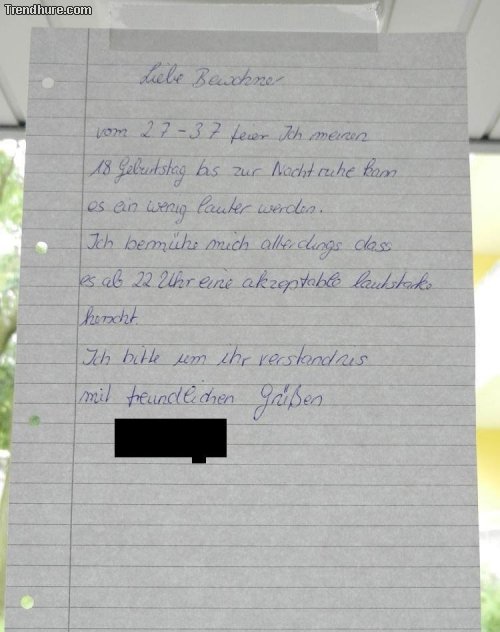 Trendhure.com
Liebe Bewohner
vom 27-37 feier Ich meinen
18 Geburtstag bis zur Nachtruhe kann
es ein wenig lauter werden.
Ich bemühe mich allerdings dass
es ab 22 Uhr eine akzeptable lautstärke
herscht.
Ich bitte um ihr verständnis
mit freundlichen Grüßen